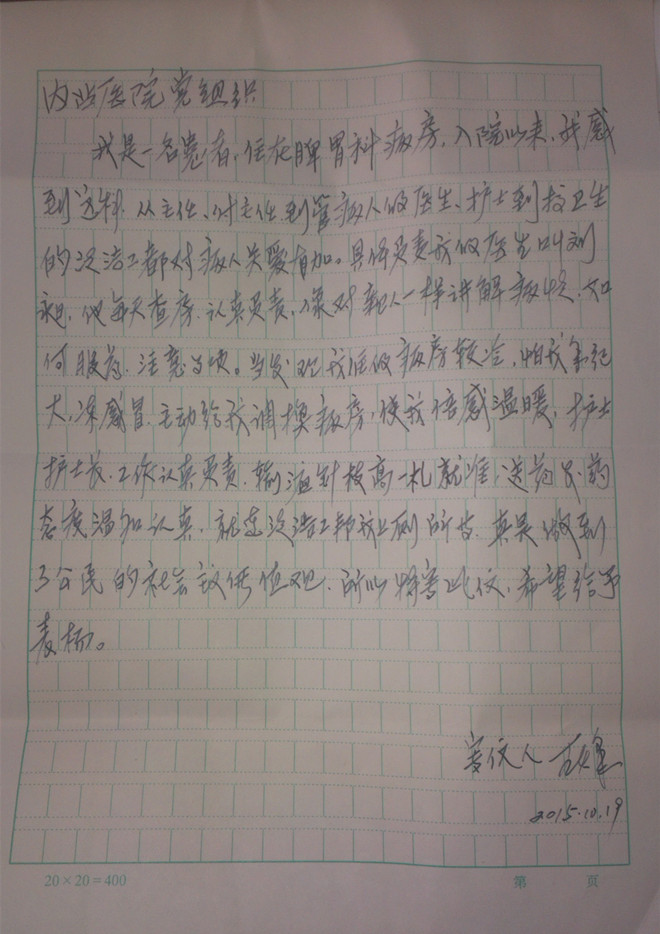 医院党组织
我是一名患者，住在脾胃科病房，入院以来，我感
到这科从主任、付主任到管病人的医生、护士到搞卫生
的洁工都对病人关爱有加。具体负责我的医生叫刘
他每天查房，认真负责，像对亲人一样讲解病情，如
何服药，注意事项。当发现我住的病房较冷，怕我年纪
大，冻感冒，主动给我调换病房，使我倍感温暖，护士
护士长、工作认真负责，输液针技高一札就准，送药发药
态度温和认真，就连洁工帮我上厕所, 真是做到
了公民的社会价值观，所以特写此仪，希望给予
表杨。
写仪人
2015.10.19
20×20=400
第 页